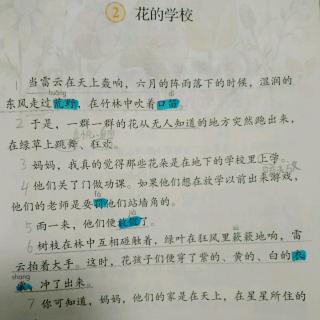 ② 花的学校
huāng dí
1 当雷云在天上轰响，六月的阵雨落下的时候，湿润的
东风走过荒野，在竹林中吹着口笛。
2 于是，一群一群的花从无人知道的地方突然跑出来，
在绿草上跳舞、狂欢。
3 妈妈，我真的觉得那些花朵是在地下的学校里上学。
4 他们关了门做功课。如果他们想在放学以前出来游戏，
fá
他们的老师是要罚他们站墙角的。
5 雨一来，他们便放假了。
6 树枝在林中互相碰触着，绿叶在狂风里簌簌地响，雷
云拍着大手。这时，花孩子们便穿了紫的、黄的、白的衣
shang
裳，冲了出来。
7 你可知道，妈妈，他们的家是在天上，在星星所住的